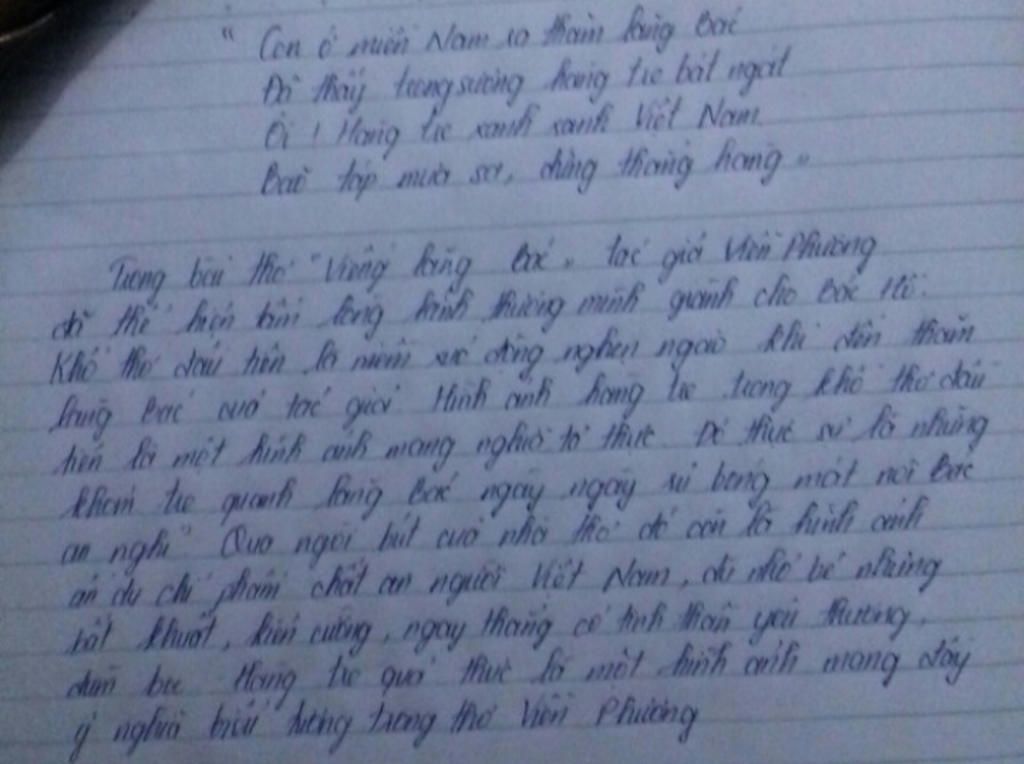 " Con ở miền Nam ra thăm lăng Bác
Đã thấy trong sương hàng tre bát ngát
Ôi ! Hàng tre xanh xanh Việt Nam
Bão táp mưa sa, đứng thẳng hàng "
Trong bài thơ "Viếng lăng Bác", tác giả Viễn Phương
đã thể hiện tấm lòng kính thương mình quành cho Bác Hồ.
Khổ thơ đầu tiên là niềm xúc động nghẹn ngào khi đến thăm
lăng Bác của tác giả. Hình ảnh hàng tre trong khổ thơ đầu
tiên là một hình ảnh mang nghĩa tả thực. Đó thực sự là những
khóm tre quanh lăng Bác ngày ngày rủ bóng mát nơi Bác
an nghỉ. Qua ngòi bút của nhà thơ đó còn là hình ảnh
ẩn dụ chỉ phẩm chất an người Việt Nam, dù nhỏ bé nhưng
bất khuất, kiên cường, ngay thẳng có tinh thần yêu thương,
đùm bọc. Hàng tre quả thực là một hình ảnh mang đầy
ý nghĩa biểu tượng trong thơ Viễn Phương